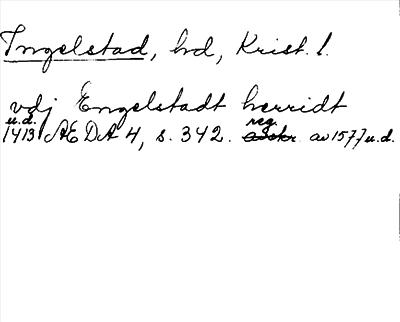 Ingelstad, hd, Krist. l.
vdj Engelstadt herridt
u.d.
1413 AEDA 4, s. 342. reg. avskr. av 1577 u.d.